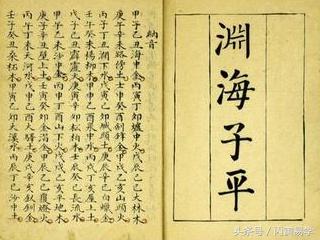 淵海子平
納音
甲子乙丑海中金丙寅丁卯爐中火戊辰己巳大林木
庚午辛未路傍土壬申癸酉劍鋒金甲戌乙亥山頭火
丙子丁丑澗下水戊寅己卯城頭土庚辰辛巳白蠟金
壬午癸未楊柳木甲申乙酉泉中水丙戌丁亥屋上土
戊子己丑霹靂火庚寅辛卯松柏木壬辰癸巳長流水
甲午乙未沙中金丙申丁酉山下火戊戌己亥平地木
庚子辛丑壁上土壬寅癸卯金箔金甲辰乙巳覆燈火
丙午丁未天河水戊申己酉大驛土庚戌辛亥釵釧金
壬子癸丑桑柘木甲寅乙卯大溪水丙辰丁巳沙中土
头条号 / 易学